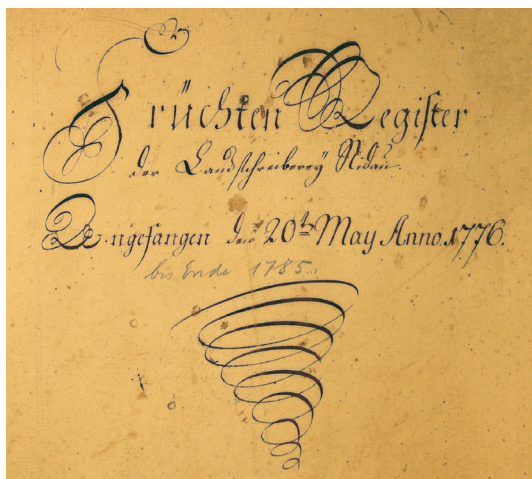 Früchten Register
der Landschreiberey Nidau.
Angefangen den 20ten May Anno. 1776.
bis Ende 1785.